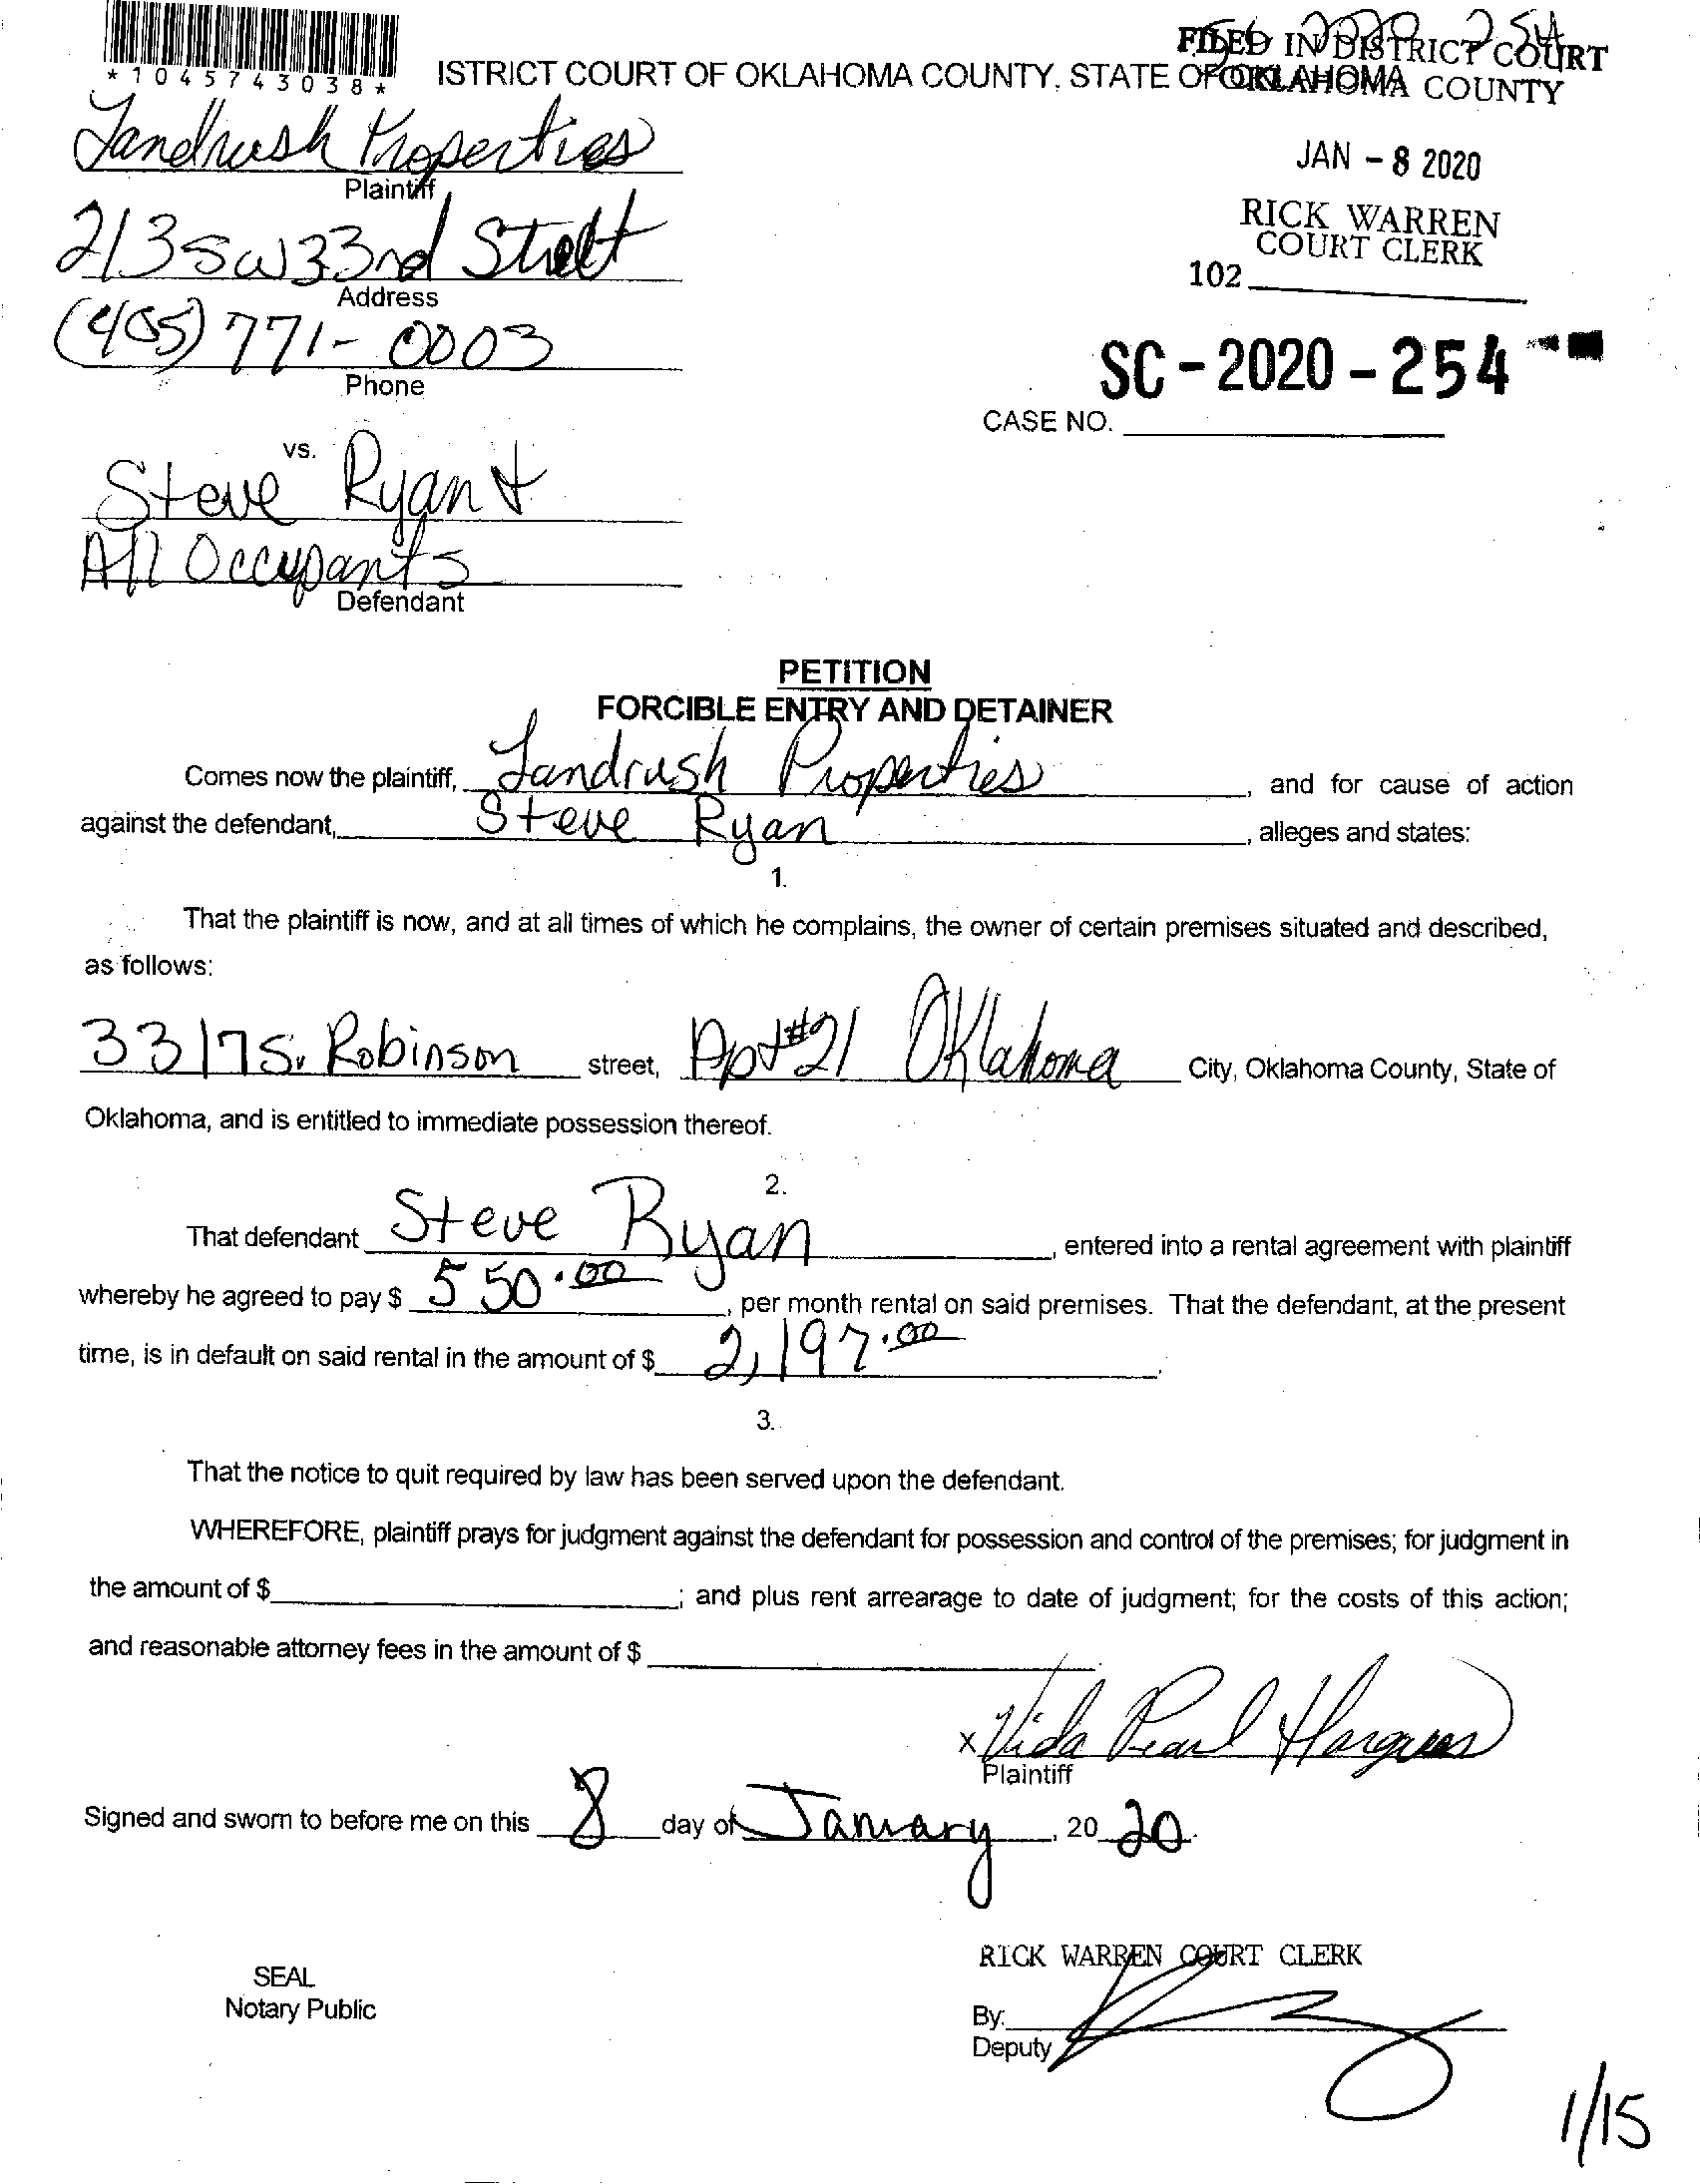 FILED IN DISTRICT COURT
*1045743038*
ISTRICT COURT OF OKLAHOMA COUNTY, STATE OF OKLAHOMA
OKLAHOMA COUNTY
Landrush Properties
Plaintiff
JAN - 8 2020
213 SW 33rd Street
Address
RICK WARREN
COURT CLERK
102
(405) 771-0003
Phone
SC - 2020 - 254
CASE NO.
vs.
Steve Ryan &
All Occupants
Defendant
PETITION
FORCIBLE ENTRY AND DETAINER
Comes now the plaintiff, Landrush Properties, and for cause of action
against the defendant, Steve Ryan, alleges and states:
1.
That the plaintiff is now, and at all times of which he complains, the owner of certain premises situated and described,
as follows:
3317 S. Robinson street, Apt #21 Oklahoma City, Oklahoma County, State of
Oklahoma, and is entitled to immediate possession thereof.
2.
That defendant Steve Ryan, entered into a rental agreement with plaintiff
whereby he agreed to pay $ 550.00, per month rental on said premises. That the defendant, at the present
time, is in default on said rental in the amount of $ 2,197.00.
3.
That the notice to quit required by law has been served upon the defendant.
WHEREFORE, plaintiff prays for judgment against the defendant for possession and control of the premises; for judgment in
the amount of $ ; and plus rent arrearage to date of judgment; for the costs of this action;
and reasonable attorney fees in the amount of $
x Vida Pearl
Plaintiff
Signed and sworn to before me on this 8 day of January, 20 20.
RICK WARREN COURT CLERK
SEAL
Notary Public
By:
Deputy
1/15